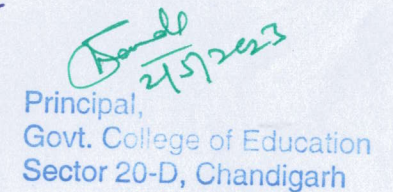 2/5/2023
Principal,
Govt. College of Education
Sector 20-D, Chandigarh